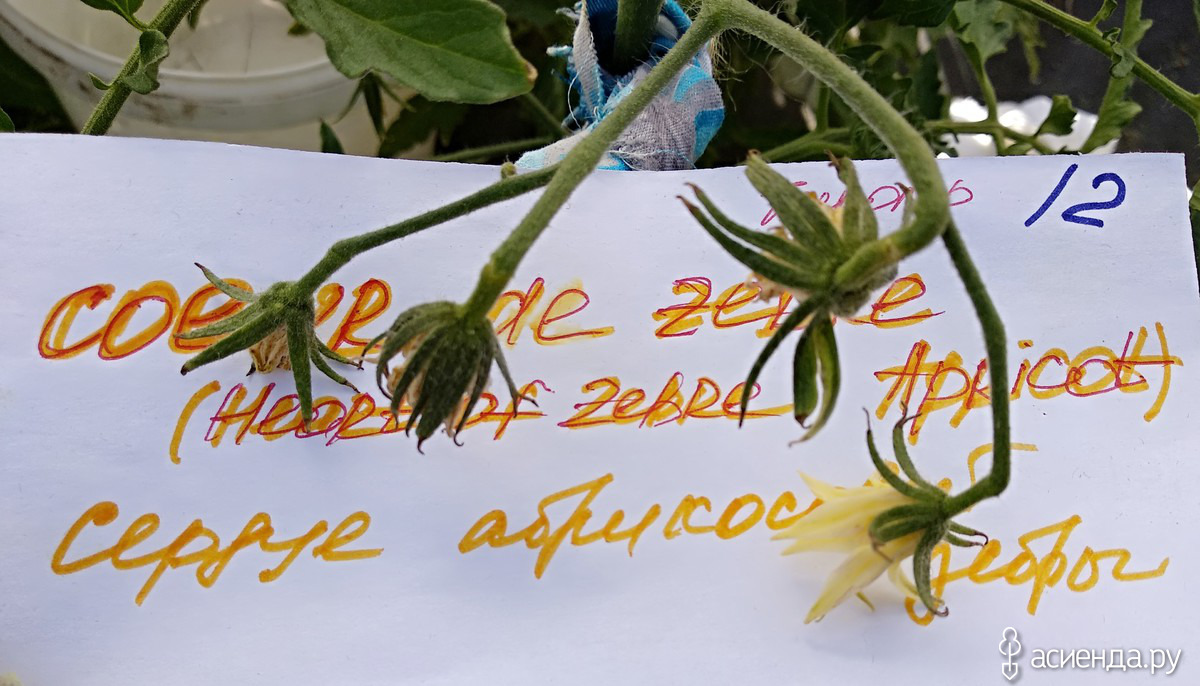 12
COEUR de zebre
(Heart of zebre Apricot)
Сердце абрикос зебры
асиенда.ру